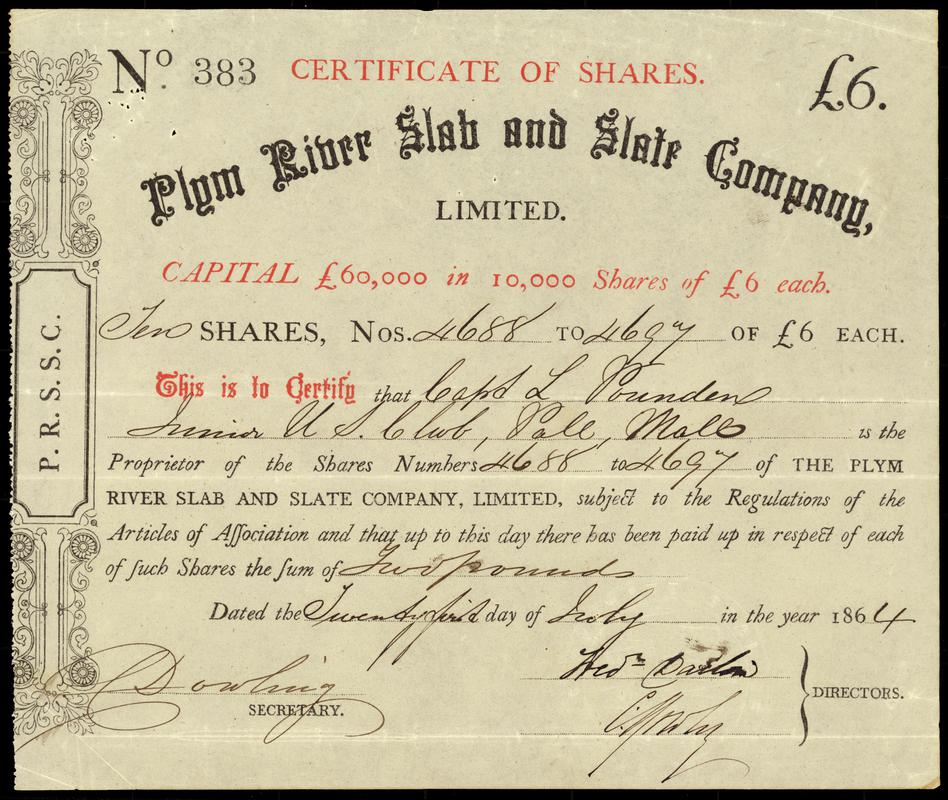 Nº. 383 CERTIFICATE OF SHARES. £6.
Plym River Slab and Slate Company,
LIMITED.
CAPITAL £60,000 in 10,000 Shares of £6 each.
Ten SHARES, Nos. 4688 TO 4697 OF £6 EACH.
This is to Certify that Capt L Pounden
Junior U S. Club, Pall, Mall is the
Proprietor of the Shares Numbers 4688 to 4697 of THE PLYM
RIVER SLAB AND SLATE COMPANY, LIMITED, subject to the Regulations of the
Articles of Association and that up to this day there has been paid up in respect of each
of such Shares the sum of Two pounds
Dated the Twenty first day of July in the year 1864
Dowling
SECRETARY.
Fredk
DIRECTORS.
P. R. S. S. C.